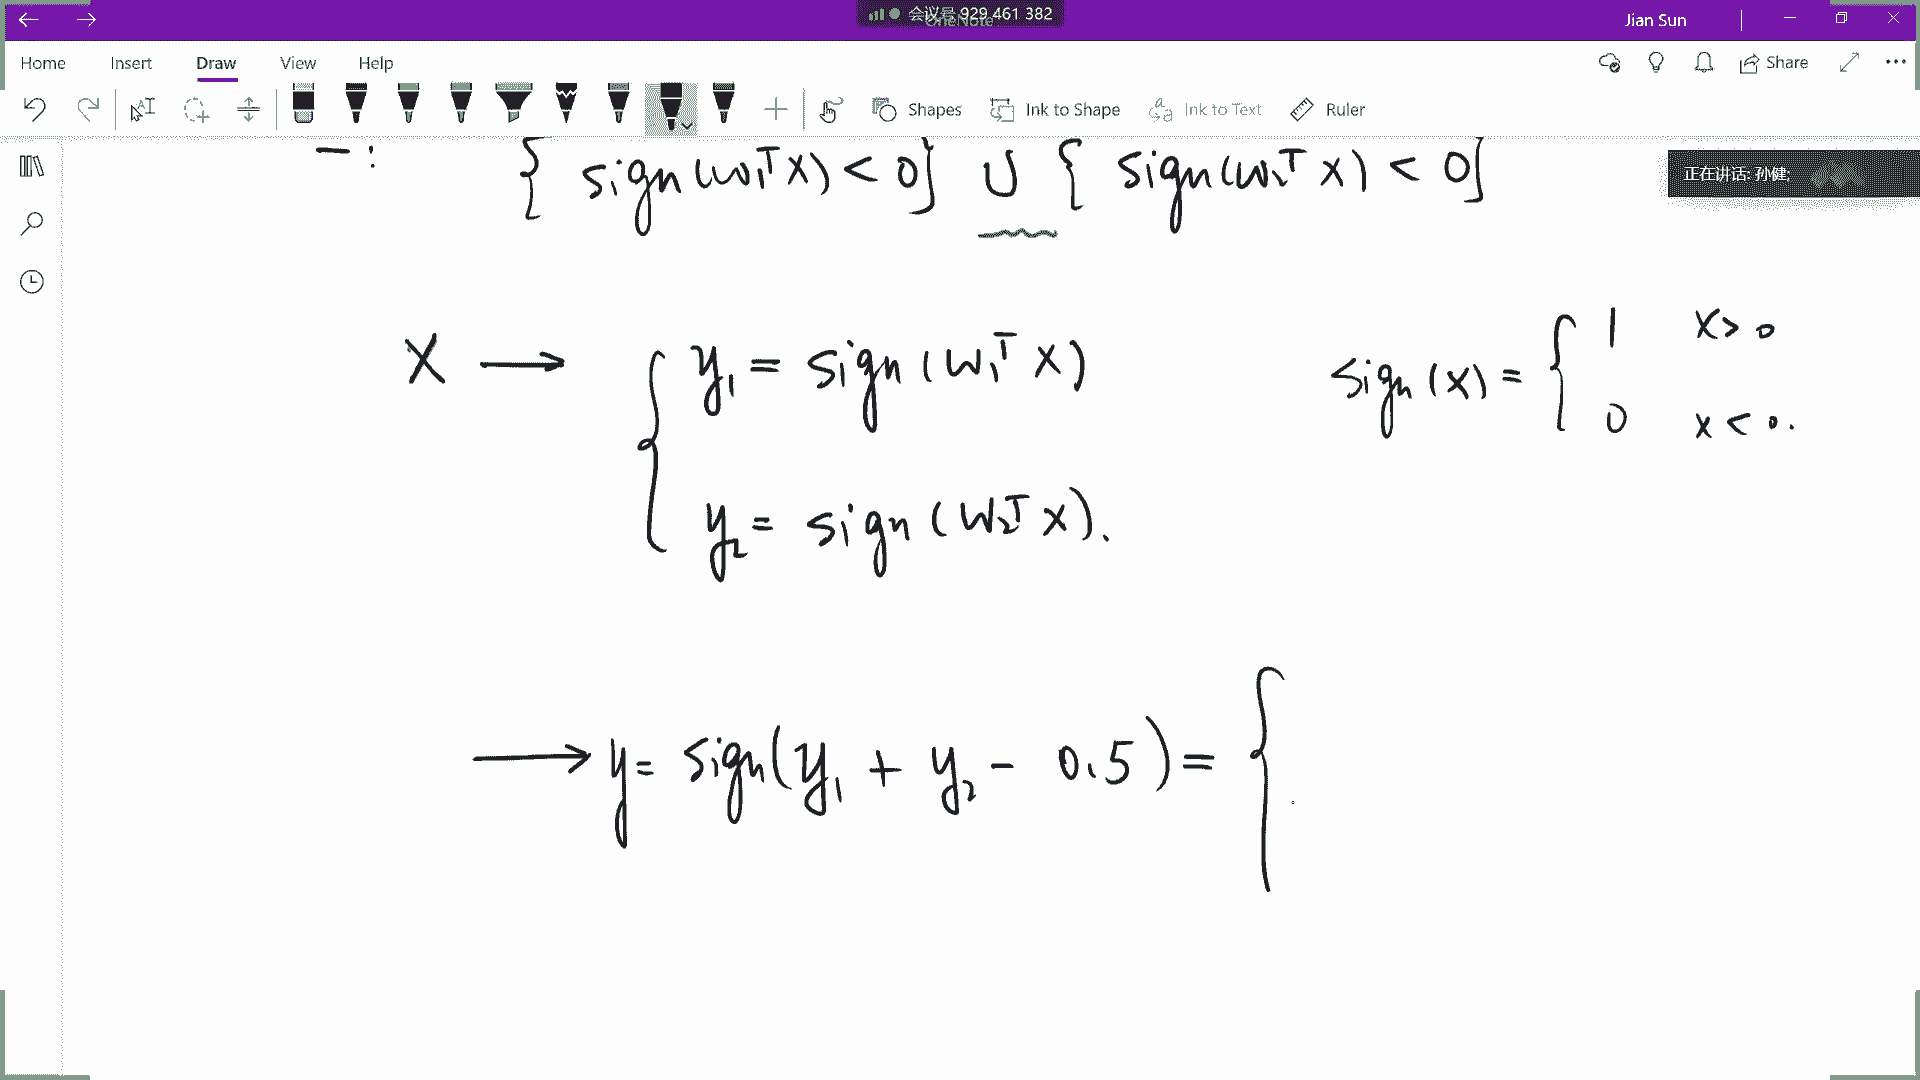 会议号 929 461 382
OneNote
Jian Sun
Home Insert Draw View Help
Share
Shapes Ink to Shape Ink to Text Ruler
正在讲话: 孙健;
− : { sign(w₁ᵀx) < 0} ∪ { sign(w₂ᵀx) < 0}
X → { y₁ = sign(w₁ᵀx)
y₂ = sign(w₂ᵀx).
sign(x) = { 1 x > 0
0 x < 0.
→ y = sign(y₁ + y₂ − 0.5) = {